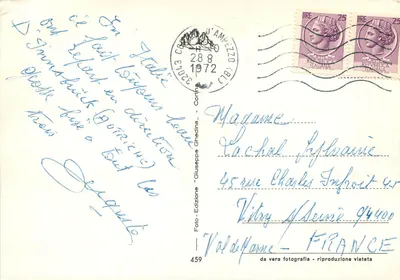 En Italie
il fait toujours beau
ont repart en direction
D'Innsbruck (AUTRICHE) les
gross bise a tout
trois
Auguste
32043 CORTINA D'AMPEZZO (BL)
28 9
1972
LIRE 25
LIRE 25
Madame
Lachal Sylvaine
45 rue Charles Infroit 45
Vitry s/Seine 94400
Val de Marne - FRANCE
Foto-Edizione "Giuseppe Ghedina"
459
da vera fotografia - riproduzione vietata